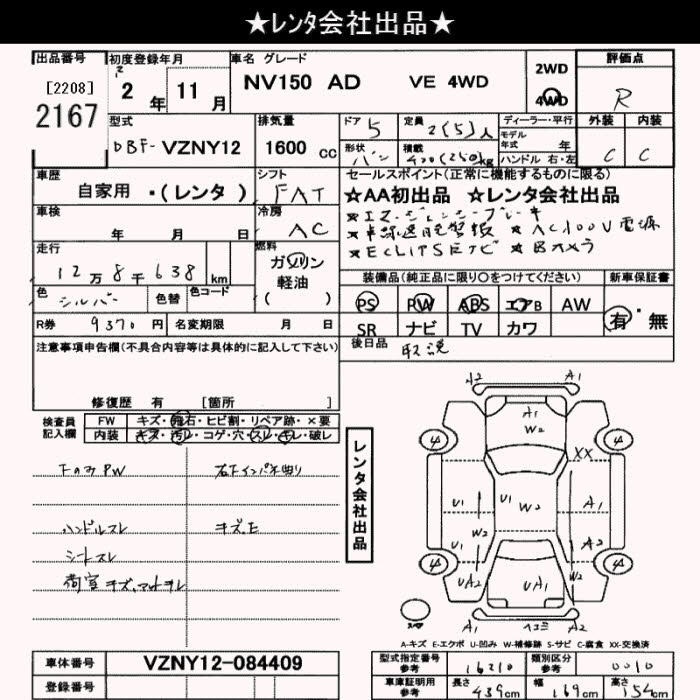 ★レンタ会社出品★
出品番号 初度登録年月 車名 グレード 評価点
[2208] 2 年 11 月 NV150 AD VE 4WD 2WD
2167 4WD R
型式 排気量 ドア 5 定員 2(5)人 ディーラー・平行 外装 内装
DBF- VZNY12 1600 cc 形状 バン 積載 400(250)kg モデル年式 年 C C
ハンドル 右・左
車歴 シフト セールスポイント(正常に機能するものに限る)
自家用 ・(レンタ ) FAT ★AA初出品 ★レンタ会社出品
車検 冷房 ★エマージェンシーブレーキ
年 月 日 AC ★車線逸脱警報 ★AC100V電源
走行 燃料 ★ECLIPSEナビ ★Bカメラ
12万8千638 km ガソリン
軽油
( )
装備品(純正品に限り○をつけてください) 新車保証書
色 シルバー 色替 色コード PS PW ABS エアB AW 有・無
R券 9370 円 名変期限 月 日 SR ナビ TV カワ
後日品 取説
注意事項申告欄(不具合内容等は具体的に記入して下さい)
修復歴 有 [箇所 ]
検査員記入欄 FW キズ・飛石・ヒビ割・リペア跡・×要
内装 キズ・汚レ・コゲ・穴・スレ・キレ・破レ
FのみPW 右Fインパネ曲り
ハンドルスレ キズ、E
シートスレ
荷室キズ、マットヨレ
レンタ会社出品
A2 A1
A1
W2
4 4
XX
U1 U1 W2 A1
U1 W2 W2 A2
4 4
UA2 UA1 A1
A1 ヘコミ A2
A-キズ E-エクボ U-凹み W-補修跡 S-サビ C-腐食 XX-交換済
車体番号 VZNY12-084409
登録番号
型式指定番号 参考 16210 類別区分 参考 0010
車庫証明用 参考 長さ 439cm 幅 169cm 高さ 154cm